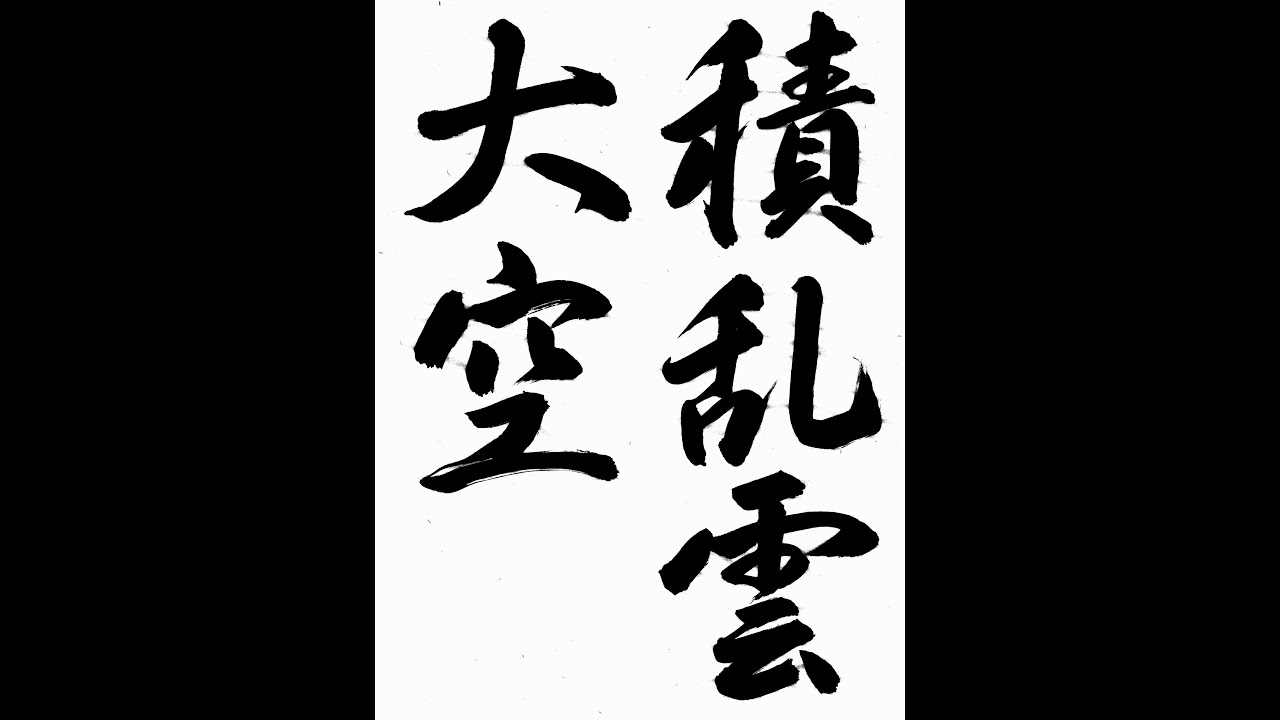 積乱雲
大空